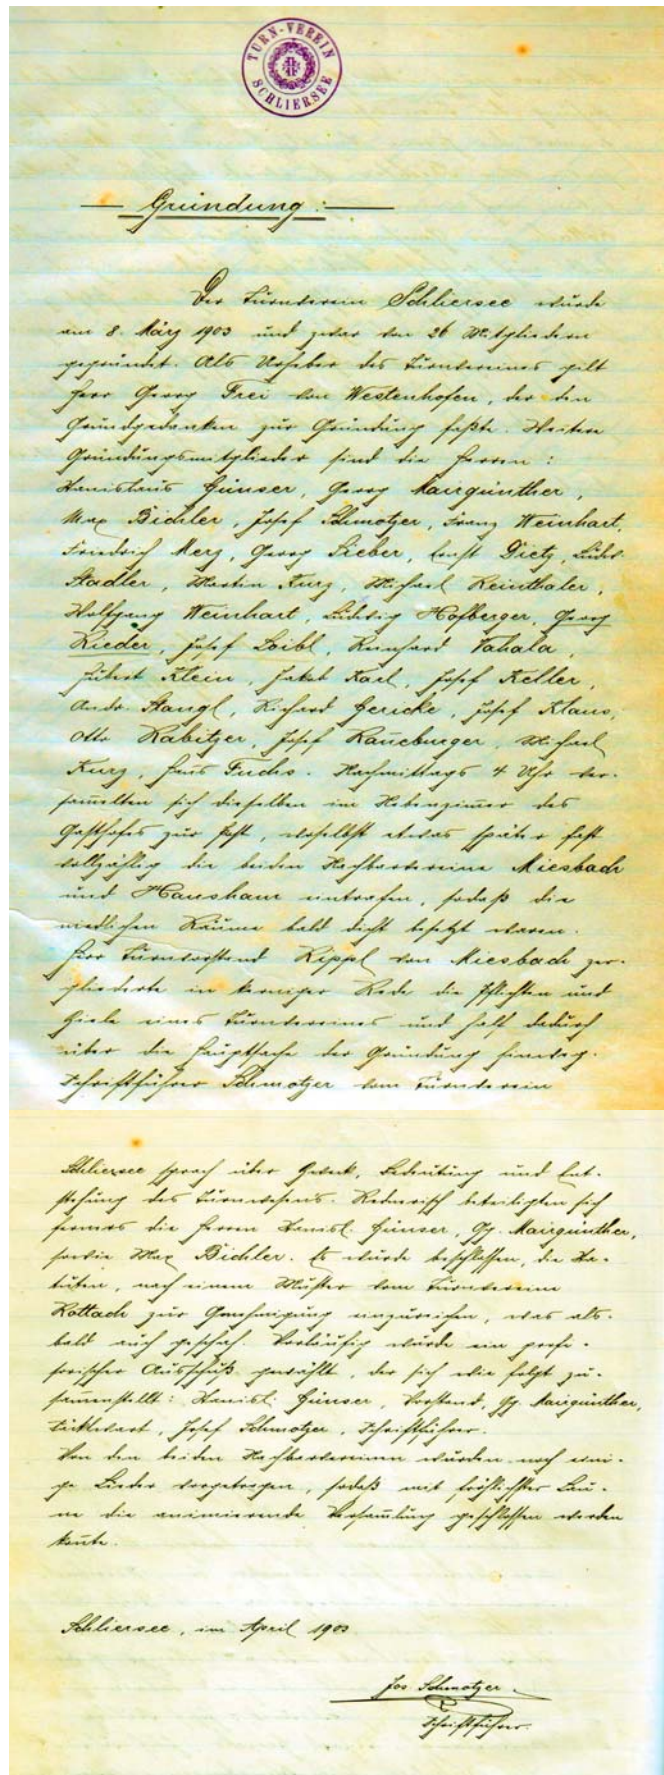 TURN-VEREIN
SCHLIERSEE
Gründung:
Der Turnverein Schliersee wurde
am 8. März 1903 und zwar von 26 Mitgliedern
gegründet. Als Urheber des Turnvereines gilt
Herr Georg Frei von Westenhofen, der den
Grundgedanken zur Gründung faßte. Weitere
Gründungsmitglieder sind die Herren:
Stanislaus Günser, Georg Mairgünther,
Max Bichler, Josef Schmotzer, Franz Weinhart,
Friedrich Merz, Georg Sieber, Ernst Dietz, Ludw.
Stadler, Martin Kurz, Michael Reinthaler,
Wolfgang Weinhart, Ludwig Hofberger, Georg
Rieder, Josef Loibl, Reinhard Vahala,
Hubert Klein, Jakob Karl, Josef Keller,
Andr. Stangl, Richard Gericke, Josef Klaus,
Otto Rabitzer, Josef Raueburger, Michael
Kurz, Hans Fuchs. Nachmittags 4 Uhr ver-
sammelten sich dieselben im Nebenzimmer des
Gasthofes zur Post, woselbst etwas später fast
vollzählig die beiden Nachbarvereine Miesbach
und Hausham eintrafen, sodaß die
niedlichen Räume bald dicht besetzt waren.
Herr Turnvorstand Rippl von Miesbach zer-
gliederte in kerniger Rede die Pflichten und
Ziele eines Turnvereines und half dadurch
über die Hauptsache der Gründung hinweg.
Schriftführer Schmotzer vom Turnverein
Schliersee sprach über Zweck, Bedeutung und Ent-
stehung des Turnwesens. Rednerisch beteiligten sich
ferners die Herren Stanisl. Günser, Gg. Mairgünther,
sowie Max Bichler. Es wurde beschlossen, die Sta-
tuten, nach einem Muster vom Turnvereine
Rottach zur Genehmigung einzureichen, was als-
bald auch geschah. Vorläufig wurde ein provi-
sorischer Ausschuß gewählt, der sich wie folgt zu-
sammenstellt: Stanisl. Günser, Vorstand, Gg. Mairgünther,
Säckelwart, Josef Schmotzer, Schriftführer.
Von den beiden Nachbarvereinen wurden noch eini-
ge Lieder vorgetragen, sodaß mit fröhlichster Lau-
ne die animierende Versammlung geschlossen werden
konnte.
Schliersee, im April 1903
Jos Schmotzer
Schriftführer.